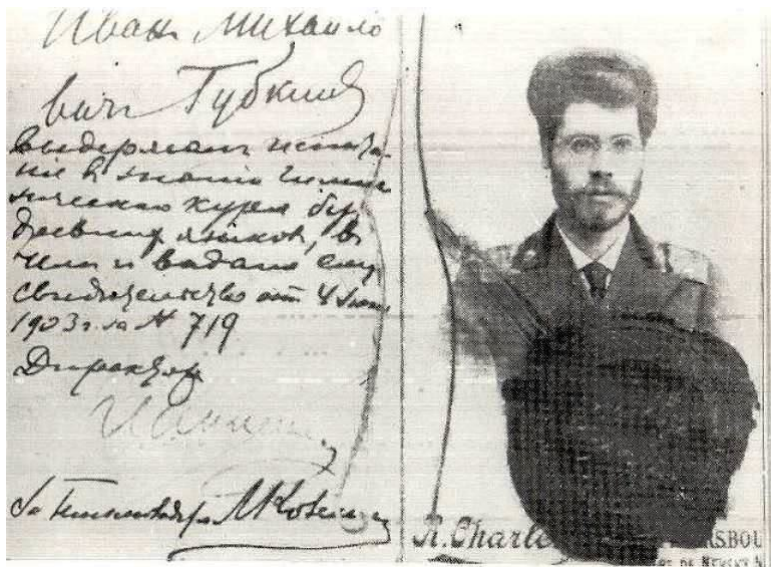 Иван Михайло
вич Губкин
выдержал испыта
ние в знании гимна
зического курса без
древних языков, в
чем и выдано ему
свидетельство от 4 июня
1903 г. за № 719
Директор
R. Charle
RSBOU